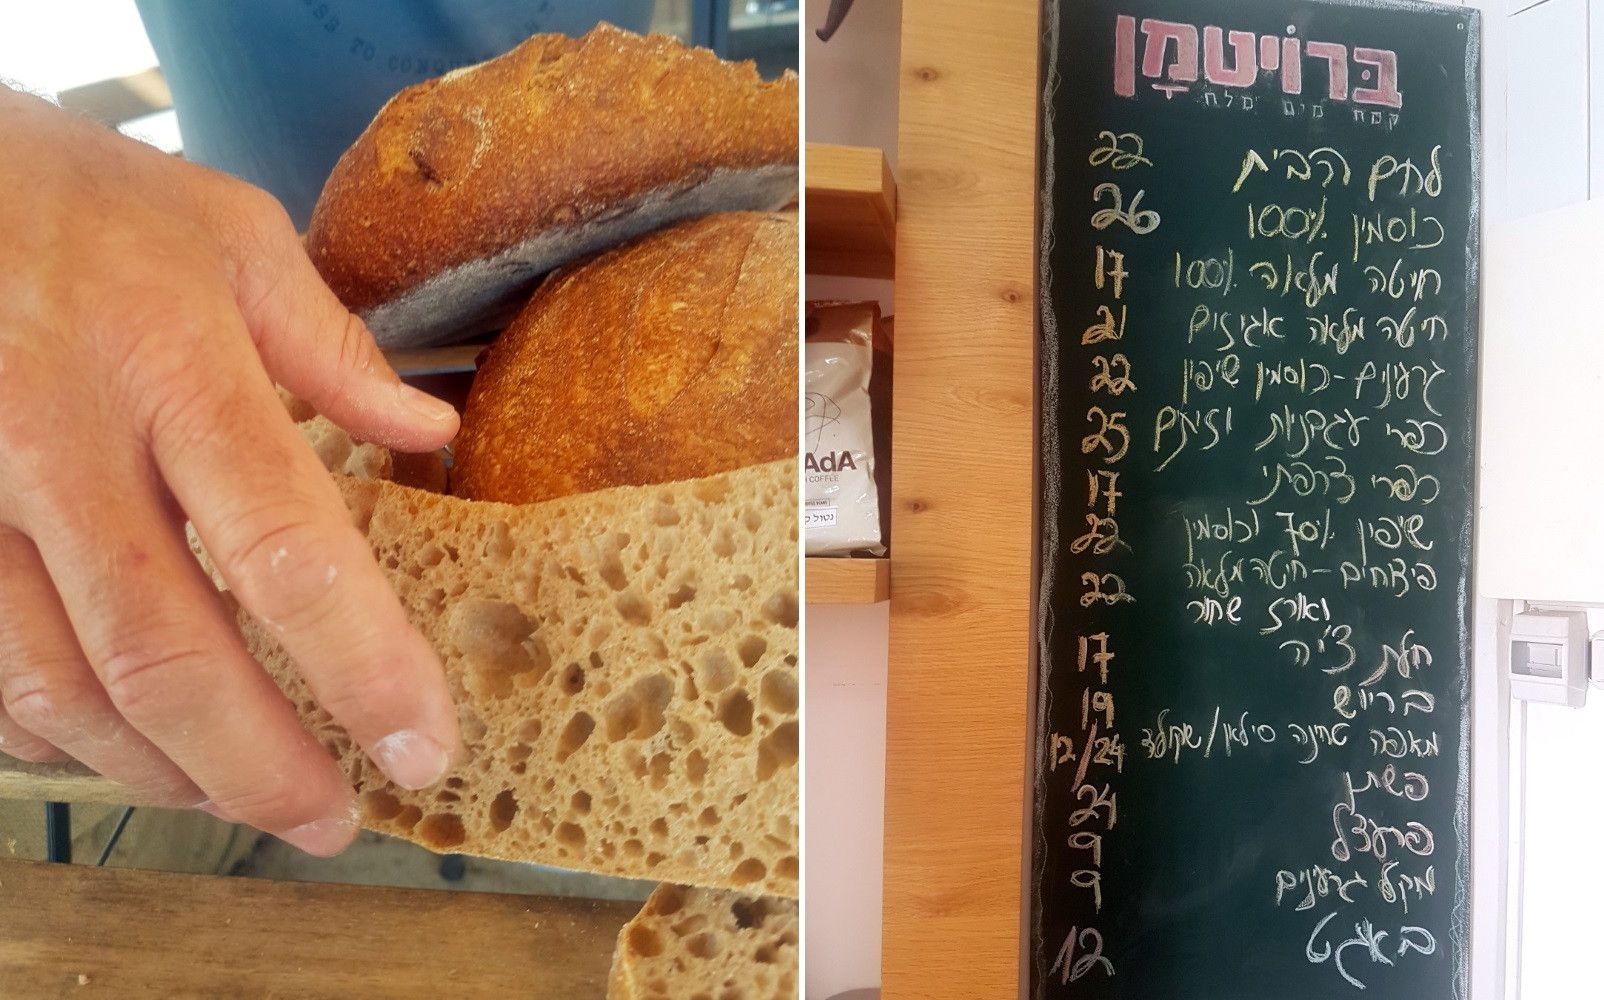 ברויטמן
קמח מים מלח
לחם הבית 22
כוסמין 100% 26
חיטה מלאה 100% 17
חיטה מלאה אגוזים 21
גרעינים - כוסמין שיפון 22
כפרי עגבניות וזיתים 25
כפרי צרפתי 17
שיפון 70% וכוסמין 22
פיצוחים - חיטה מלאה 22
ואורז שחור
חלת צ'יה 17
בריוש 19
מאפה טחינה סילאן/שוקולד 12/24
פשתן 21
פרעצל 9
מקל גרעינים 9
באגט 12
AdA
COFFEE
נטול